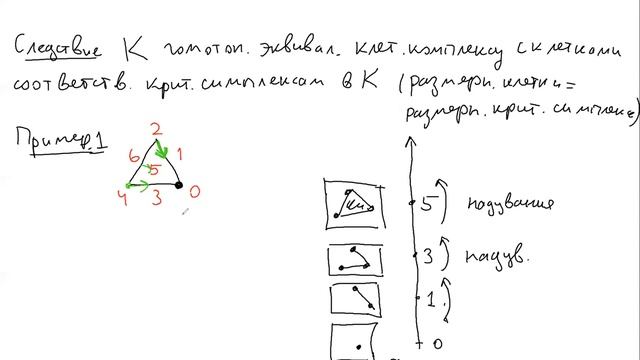 Следствие K гомотоп. эквивал. клет. комплексу с клетками
соответств. крит. симплексам в K (размерн. клетки =
размерн. крит. симплекса)
Пример. 1
2
6 5 1
4 3 0
5 надувания
3 надув.
1.
0